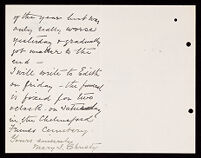 of the year but was
only really worse
yesterday & gradually
got weaker to the
end —
I will write to Edith
on Friday - the funeral
is fixed for two
o'clock - on Saturday
in the Chelmsford
Friends Cemetery.
Yours sincerely
Mary S. Christy